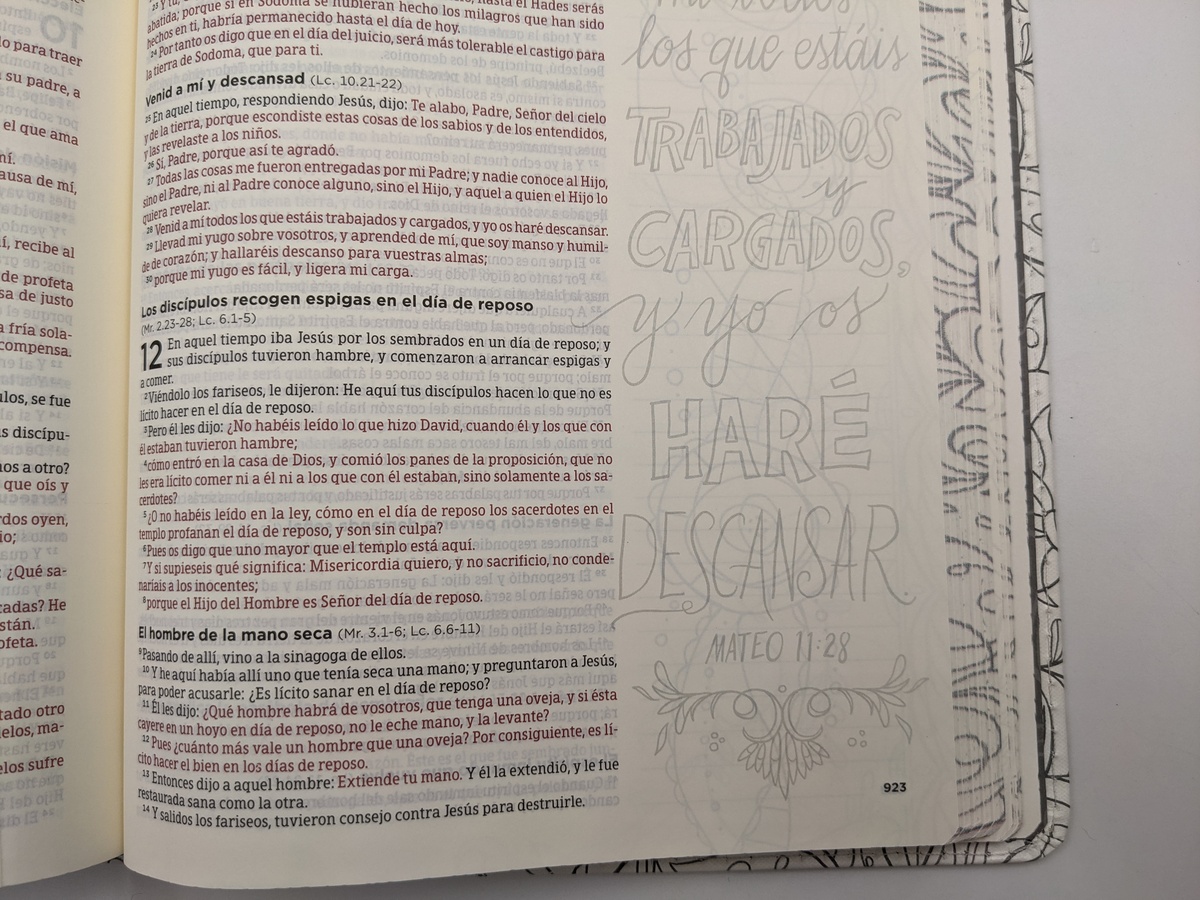 para traer
su padre, a
el que ama
ausa de mí,
recibe al
de profeta
sa de justo
a fría sola-
compensa.
se fue
discípu-
os a otro?
que oís y
oyen,
¿Qué sa-
adas? He
stán.
ofeta.
tado otro
elos, ma-
elos sufre
hasta el Hades serás
abatida; porque si en Sodoma se hubieran hecho los milagros que han sido
hechos en ti, habría permanecido hasta el día de hoy.
24 Por tanto os digo que en el día del juicio, será más tolerable el castigo para
la tierra de Sodoma, que para ti.
Venid a mí y descansad (Lc. 10.21-22)
25 En aquel tiempo, respondiendo Jesús, dijo: Te alabo, Padre, Señor del cielo
y de la tierra, porque escondiste estas cosas de los sabios y de los entendidos,
y las revelaste a los niños.
26 Sí, Padre, porque así te agradó.
27 Todas las cosas me fueron entregadas por mi Padre; y nadie conoce al Hijo,
sino el Padre, ni al Padre conoce alguno, sino el Hijo, y aquel a quien el Hijo lo
quiera revelar.
28 Venid a mí todos los que estáis trabajados y cargados, y yo os haré descansar.
29 Llevad mi yugo sobre vosotros, y aprended de mí, que soy manso y humil-
de de corazón; y hallaréis descanso para vuestras almas;
30 porque mi yugo es fácil, y ligera mi carga.
Los discípulos recogen espigas en el día de reposo
(Mr. 2.23-28; Lc. 6.1-5)
12 En aquel tiempo iba Jesús por los sembrados en un día de reposo; y
sus discípulos tuvieron hambre, y comenzaron a arrancar espigas y
a comer.
2 Viéndolo los fariseos, le dijeron: He aquí tus discípulos hacen lo que no es
lícito hacer en el día de reposo.
3 Pero él les dijo: ¿No habéis leído lo que hizo David, cuando él y los que con
él estaban tuvieron hambre;
4 cómo entró en la casa de Dios, y comió los panes de la proposición, que no
les era lícito comer ni a él ni a los que con él estaban, sino solamente a los sa-
cerdotes?
5 ¿O no habéis leído en la ley, cómo en el día de reposo los sacerdotes en el
templo profanan el día de reposo, y son sin culpa?
6 Pues os digo que uno mayor que el templo está aquí.
7 Y si supieseis qué significa: Misericordia quiero, y no sacrificio, no conde-
naríais a los inocentes;
8 porque el Hijo del Hombre es Señor del día de reposo.
El hombre de la mano seca (Mr. 3.1-6; Lc. 6.6-11)
9 Pasando de allí, vino a la sinagoga de ellos.
10 Y he aquí había allí uno que tenía seca una mano; y preguntaron a Jesús,
para poder acusarle: ¿Es lícito sanar en el día de reposo?
11 Él les dijo: ¿Qué hombre habrá de vosotros, que tenga una oveja, y si ésta
cayere en un hoyo en día de reposo, no le eche mano, y la levante?
12 Pues ¿cuánto más vale un hombre que una oveja? Por consiguiente, es lí-
cito hacer el bien en los días de reposo.
13 Entonces dijo a aquel hombre: Extiende tu mano. Y él la extendió, y le fue
restaurada sana como la otra.
14 Y salidos los fariseos, tuvieron consejo contra Jesús para destruirle.
los que estáis
TRABAJADOS
y
CARGADOS,
y yo os
HARÉ
DESCANSAR.
MATEO 11:28
923